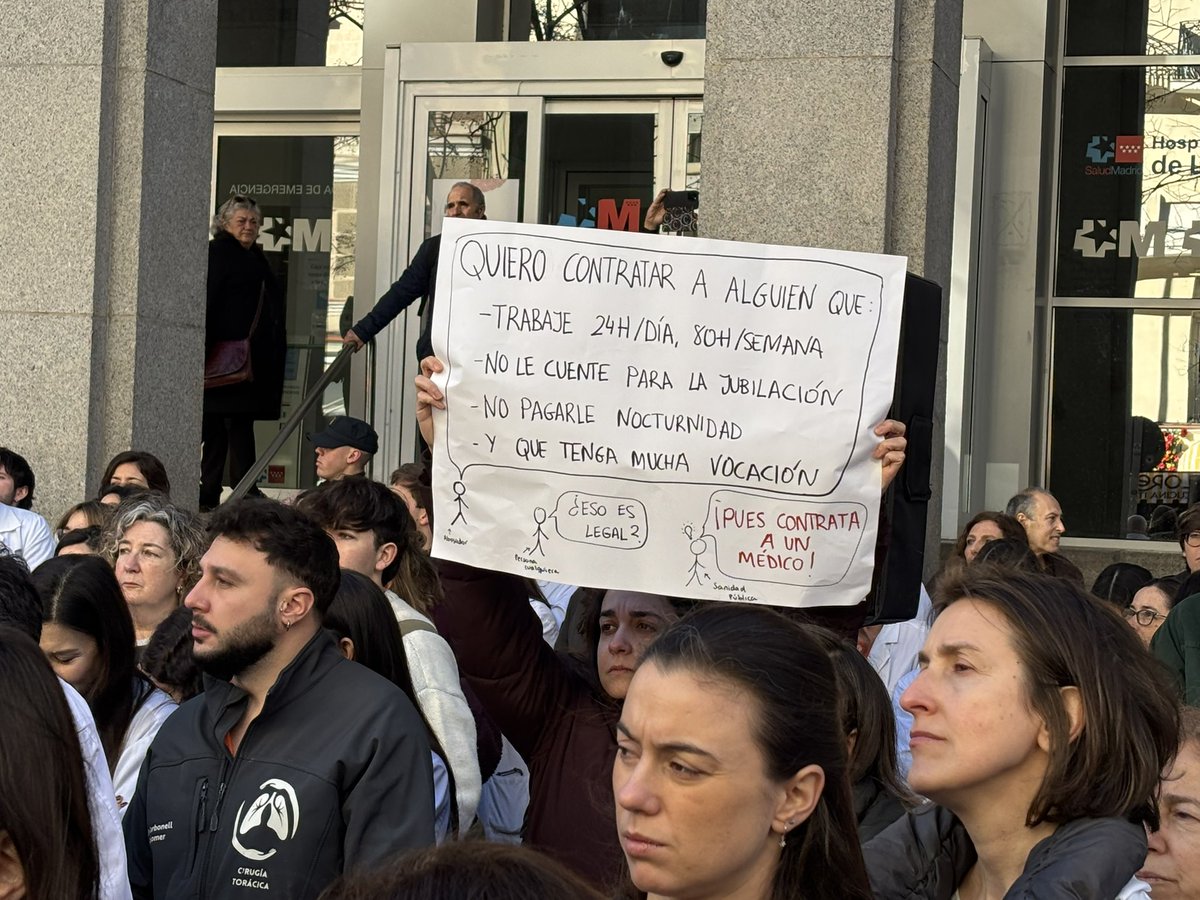 A DE EMERGENCIA
M
M
SaludMadrid
Hosp
de L
M
QUIERO CONTRATAR A ALGUIEN QUE:
-TRABAJE 24H/DÍA, 80H/SEMANA
-NO LE CUENTE PARA LA JUBILACIÓN
-NO PAGARLE NOCTURNIDAD
-Y QUE TENGA MUCHA VOCACIÓN
¿ESO ES
LEGAL?
¡PUES CONTRATA
A UN
MÉDICO!
Persona
cualquiera
Sanidad
Pública
CIRUGÍA
TORÁCICA